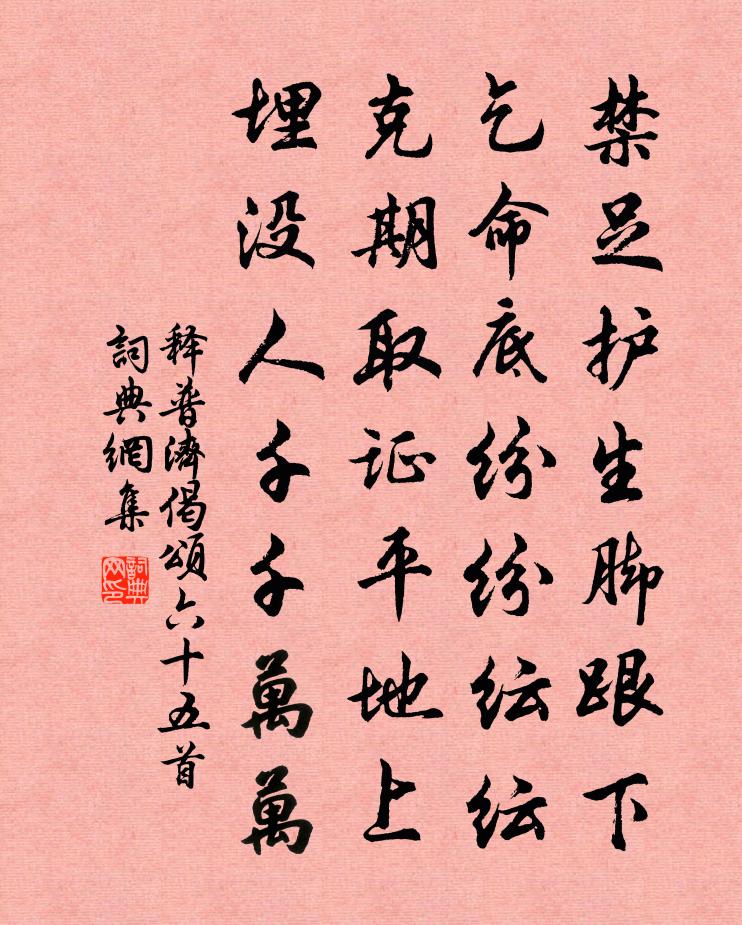 禁足护生脚跟下
乞命底纷纷纭纭
克期取证平地上
埋没人千千萬萬
释普濟偈頌六十五首
詞典網集
詞典网印